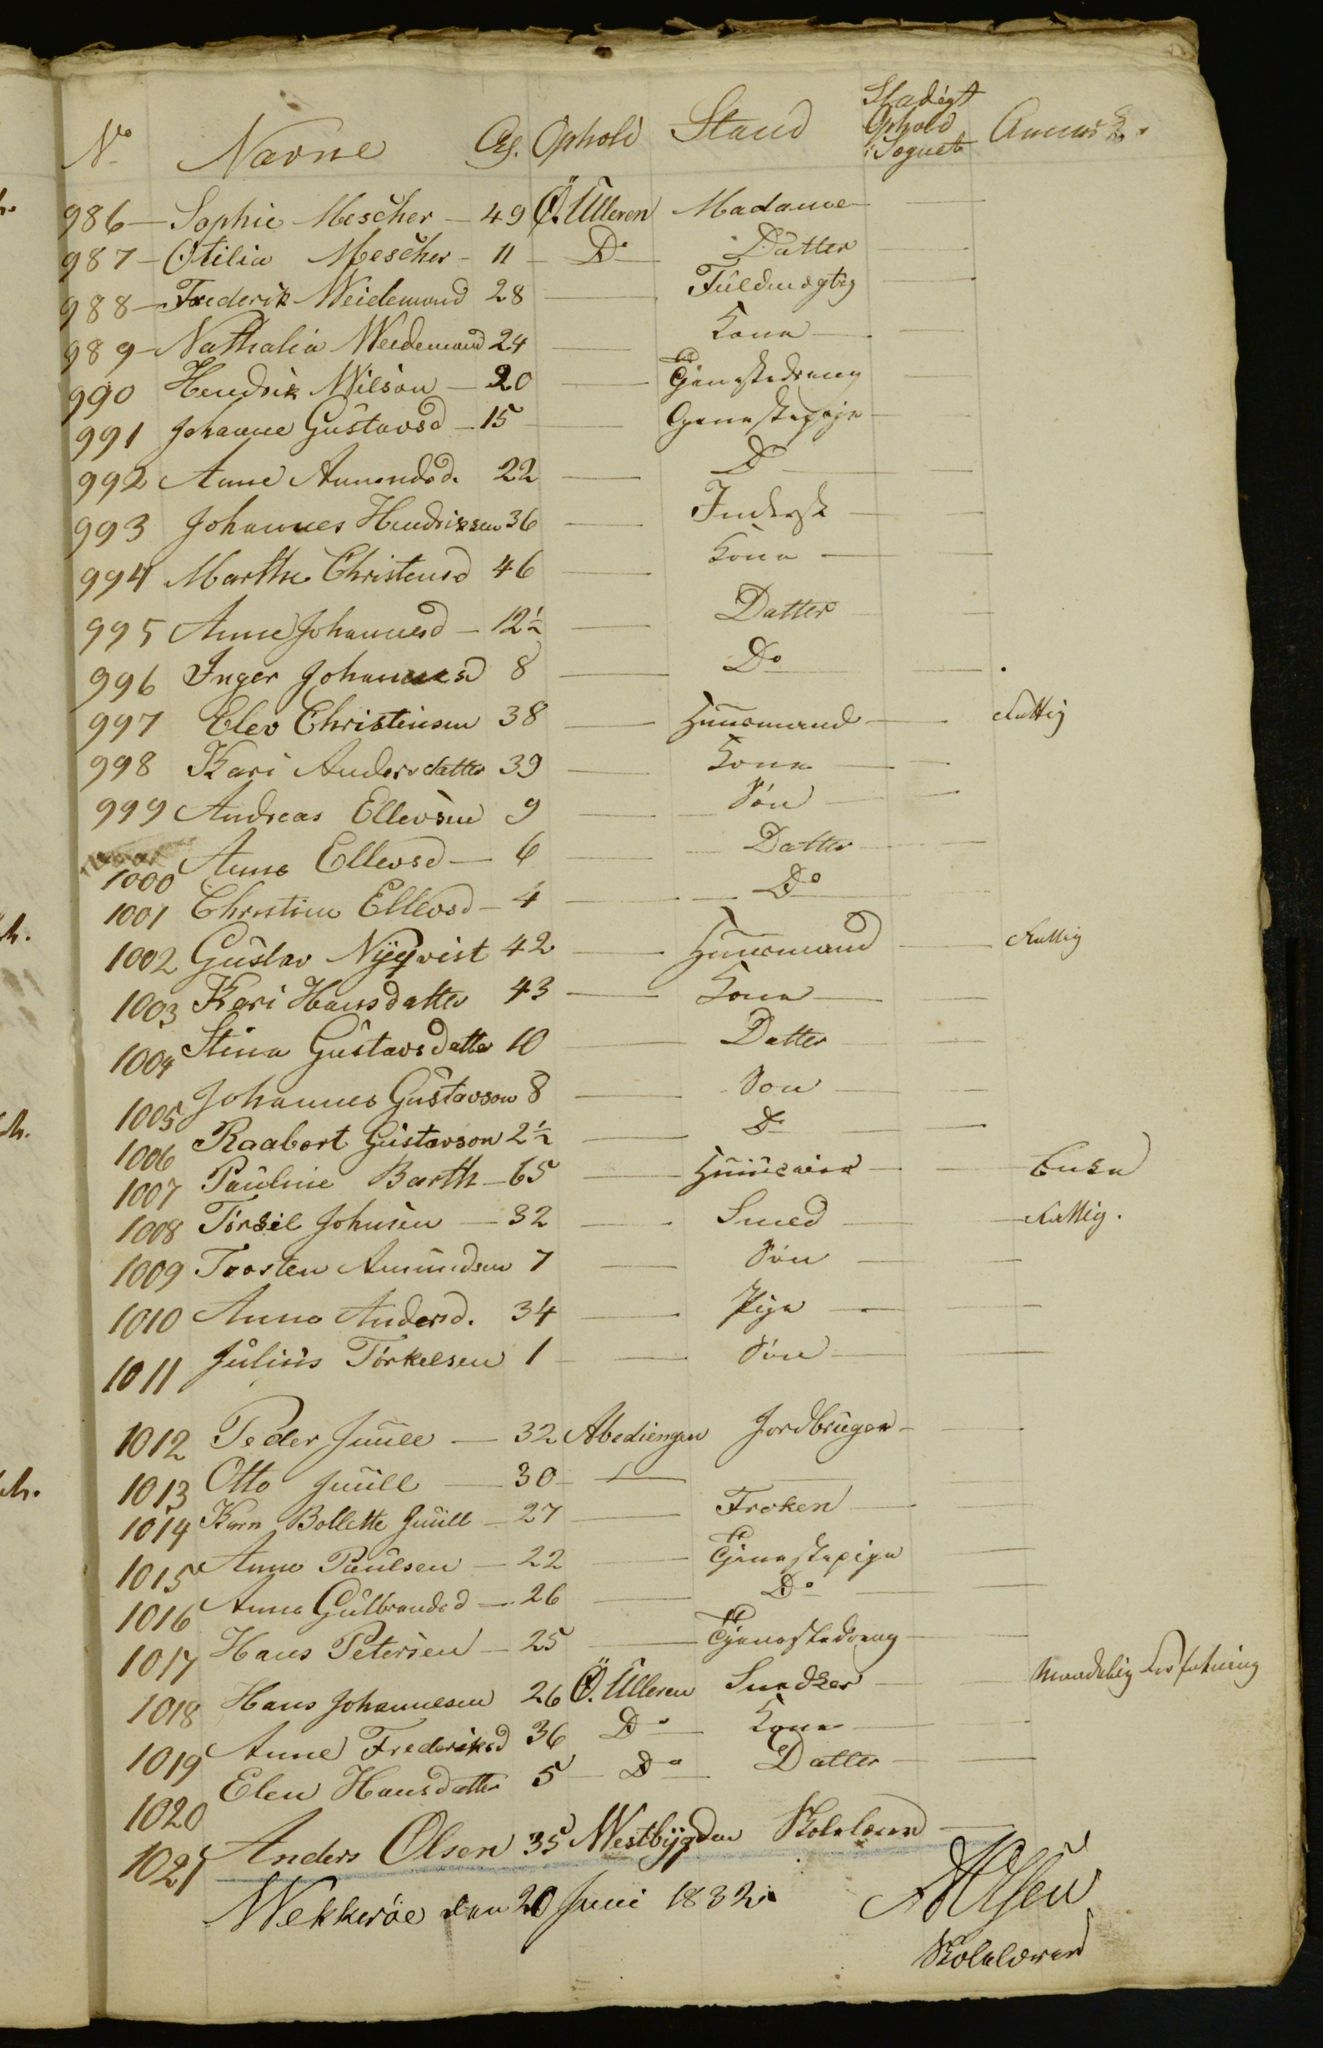 No Navne Al. Ophold Stand Stadigt Ophold i Sognet Anmk.
986 — Sophie Mescher — 49 Ö. Ulleren Madame
987 — Otilia Mescher — 11 Do Datter
988 — Frederik Weidemand 28 Fuldmægtig
989 — Nathalia Weidemand 24 Kone
990 Hendrik Nilson — 20 Tjenestedreng
991 Johanne Gustavsd — 15 Tjenestepige
992 Anne Amundsd. 22 Do
993 Johannes Hendriksen 36 Inderst
994 Marthe Christensd 46 Kone
995 Anne Johannesd — 12½ Datter
996 Inger Johannesd 8 Do
997 Elev Christensen 38 Huusmand Fattig
998 Kari Andersdatter 39 Kone
999 Andreas Ellevsen 9 Søn
1000 Anne Ellevsd — 6 Datter
1001 Christine Ellevsd — 4 Do
1002 Gustav Nÿqvist 42 Huusmand Fattig
1003 Kari Hansdatter 43 Kone
1004 Stina Gustavsdatter 10 Datter
1005 Johannes Gustavson 8 Søn
1006 Raabert Gustavson 2½ Do
1007 Pauline Barth — 65 Huuseier Enke
1008 Törkil Johnsen — 32 Smed Fattig.
1009 Torsten Amundsen 7 Søn
1010 Anne Andersd. 34 Pige
1011 Julius Törkelsen 1 Søn
1012 Peder Juull — 32 Abediengen Jordbruger
1013 Otto Juull — 30
1014 Karn Bollette Juull — 27 Frøken
1015 Anne Paulsen — 22 Tjenestepige
1016 Anne Gulbrandsd — 26 Do
1017 Hans Petersen — 25 Tjenestedreng
1018 Hans Johannesen 26 Ö. Ulleren Snedker Maadelig Forfatning
1019 Anne Frederiksd 36 Do Kone
1020 Elen Hansdatter 5 — Do Datter
1021 Anders Olsen 35 Westbÿgden Skolelærer
Wekkeröe den 20 Juni 1832
AOlsen
Skolelærer